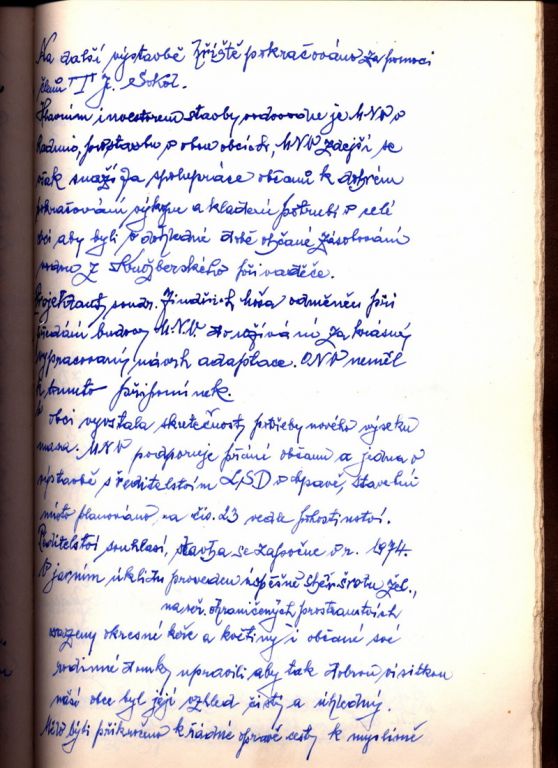 Na další výstavbě hřiště pokračováno za pomoci
členů T. J. Sokol.
Hlavním investorem stavby vodovodu je M N V v
Radunu, postavbu v obou obcích, M N V zdejší se
však snaží za spolupráce občanů k dobrém
pokračování výkopu a kladení potrubí v celé
obci aby byli v dohledné době občané zásobováni
vodou z Kružberského přivaděče.
Projektant soudr. Jindřich odměněn při
předání budovy M.N.V. do užívání za krásný
vypracovaný návrh adaptace. O.N.V neměl
k tomuto připomínek.
V obci vyvstala skutečnost potřeby nového výseku
masa. M N V podporuje přání občanů a jedná o
výstavbě s ředitelstvím LSD v Opavě, stavební
místo plánováno na čís. 23 vedle pohostinství.
Ředitelství souhlasí, stavba se započne v r. 1974.
V jarním úklidu proveden úspěšně sběr šrotu žel.,
na veř. ohraničených prostranstvích
vsazeny okrasné keře a květiny i občané své
rodinné domky upravili aby tak dobrou visitkou
naší obce byl její vzhled čistý a úhledný.
býti přikročeno k řádné opravě cesty k myslivně